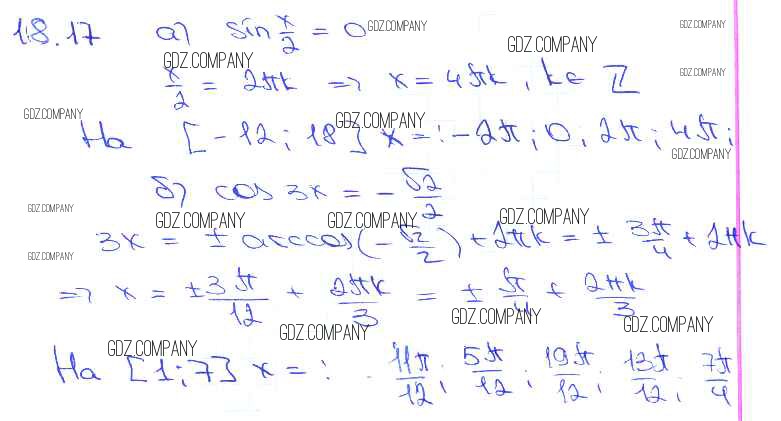 18.17 а) sin x/2 = 0 GDZ.COMPANY GDZ.COMPANY
GDZ.COMPANY GDZ.COMPANY
x/2 = 2πk => x = 4πk, k ∈ ℤ GDZ.COMPANY
GDZ.COMPANY GDZ.COMPANY
На [-12; 18] x =: -2π; 0; 2π; 4π;
GDZ.COMPANY
б) cos 3x = -√2/2
GDZ.COMPANY GDZ.COMPANY GDZ.COMPANY GDZ.COMPANY
3x = ± arccos(-√2/2) + 2πk = ± 3π/4 + 2πk
GDZ.COMPANY
=> x = ±3π/12 + 2πk/3 = ± π/4 + 2πk/3
GDZ.COMPANY GDZ.COMPANY GDZ.COMPANY
GDZ.COMPANY
На [1; 7] x =: 11π/12; 5π/12; 19π/12; 13π/12; 7π/4